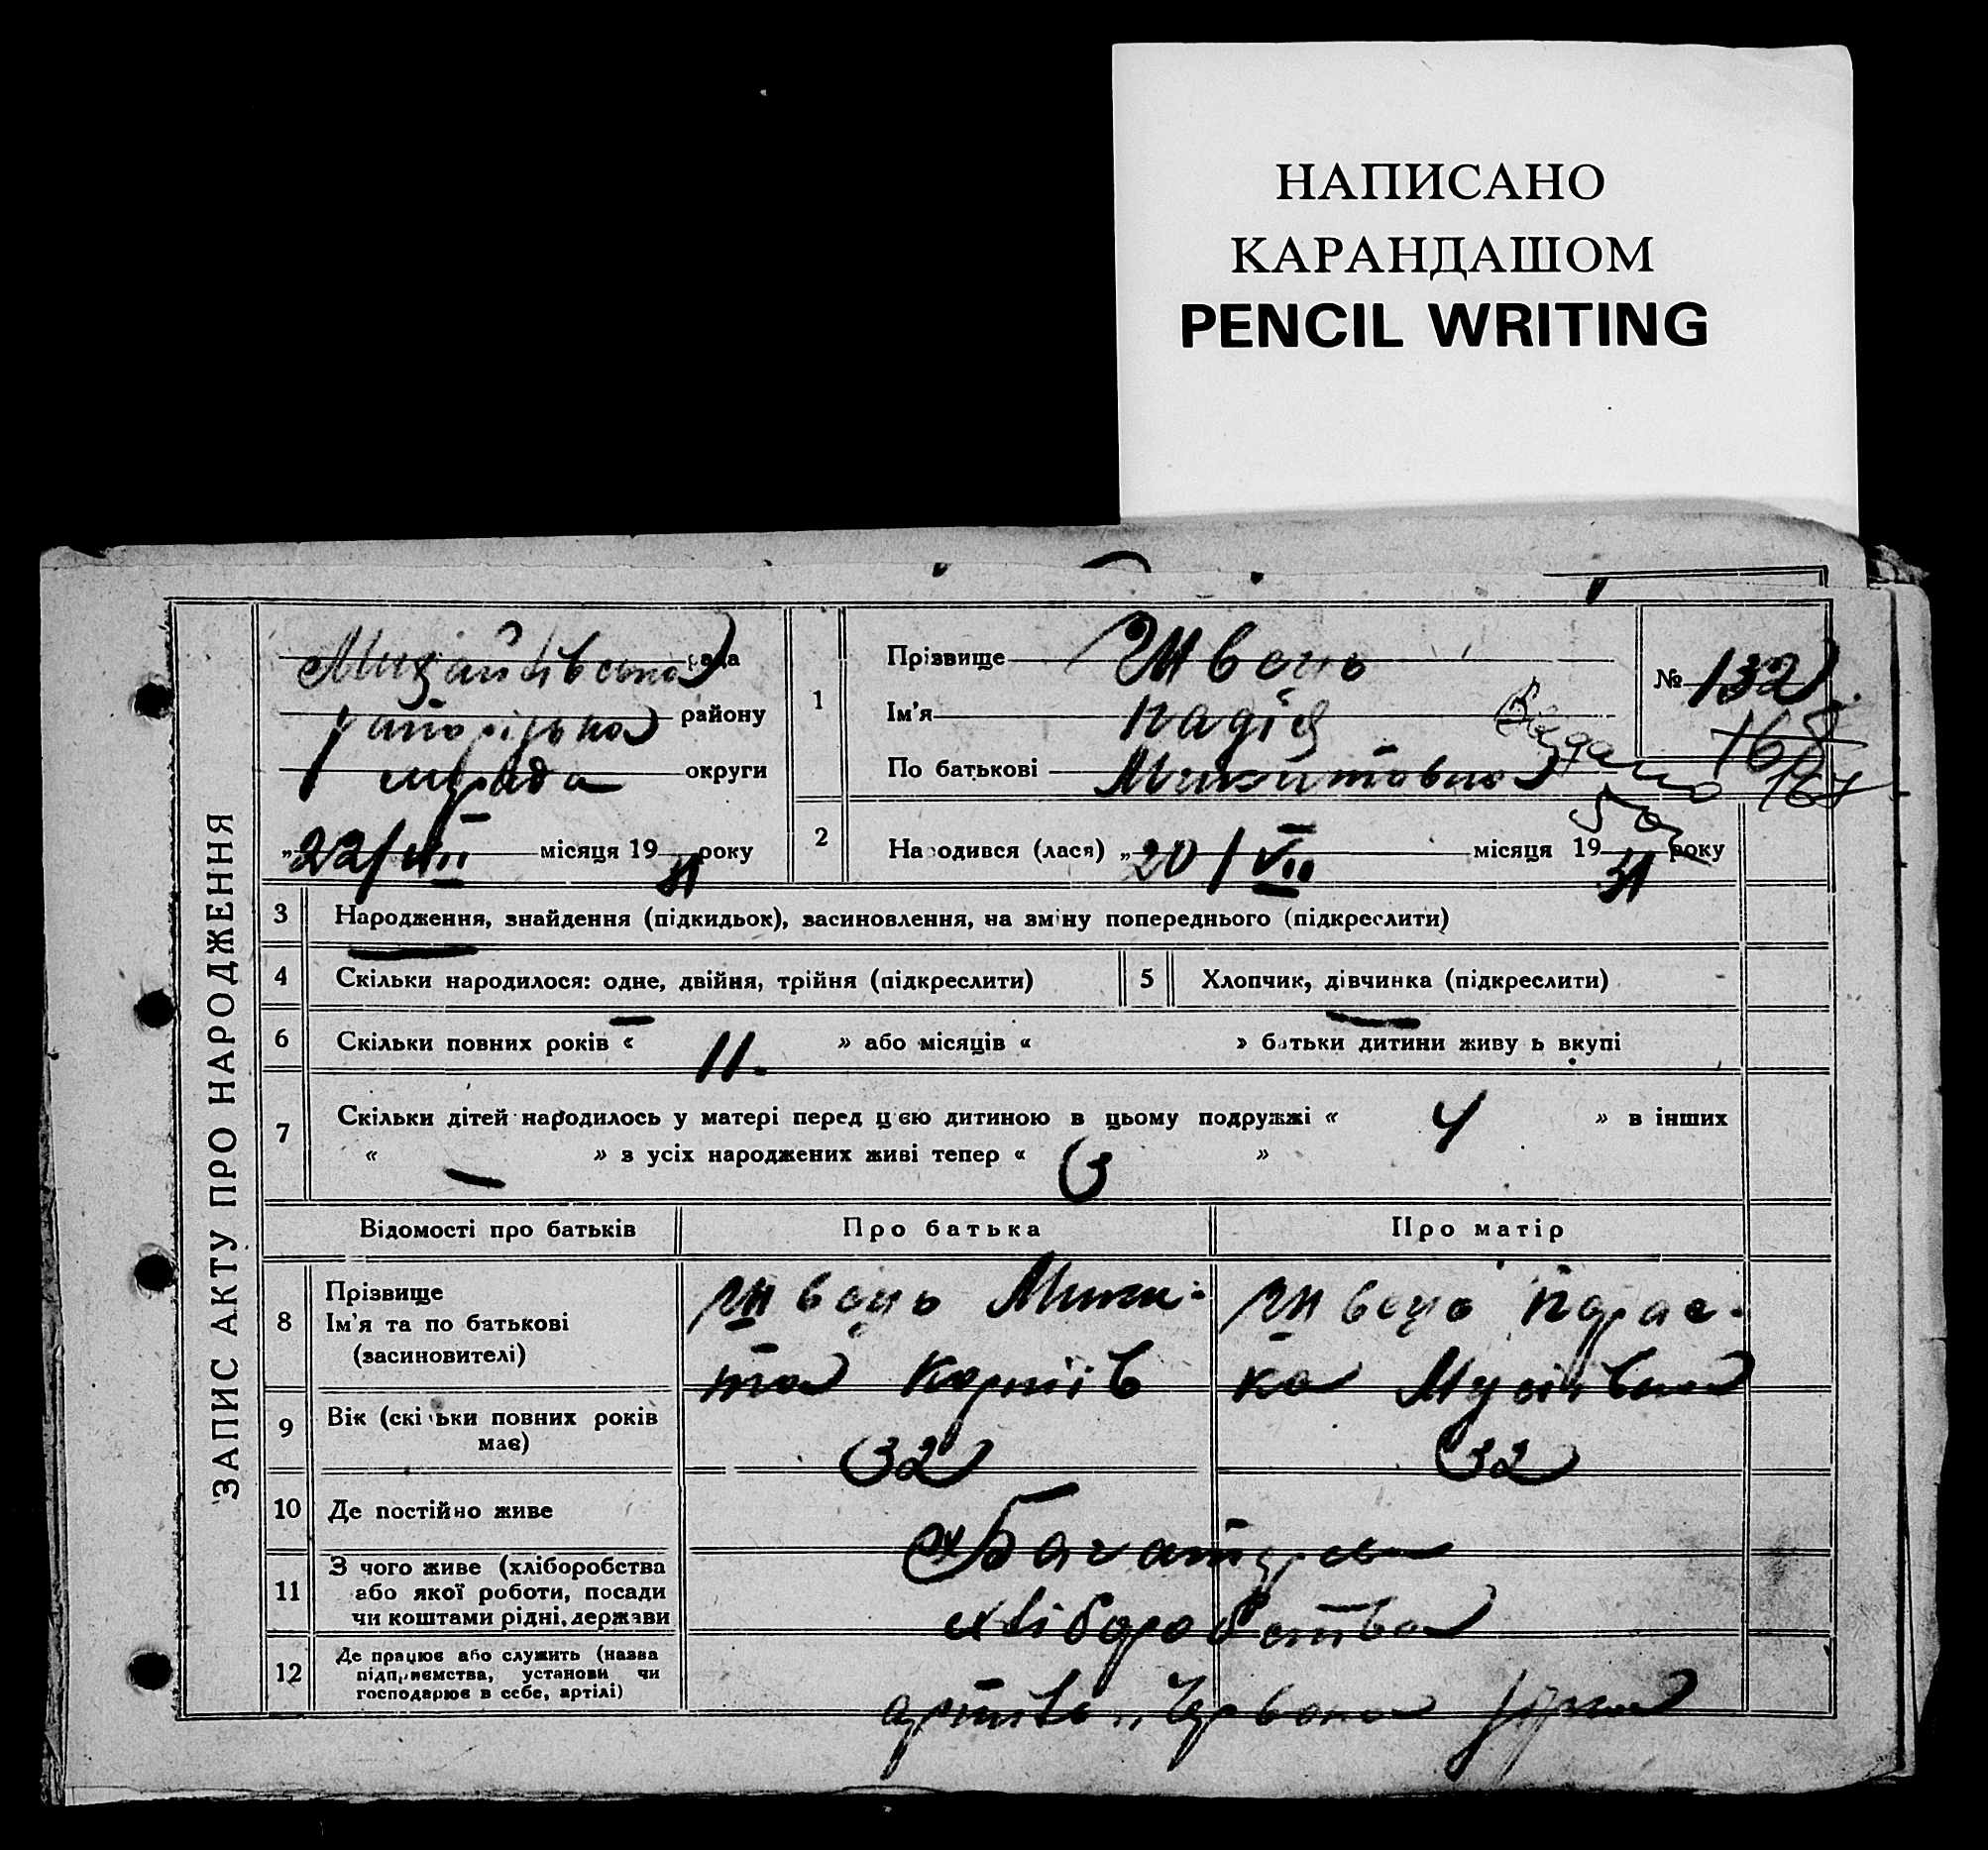 НАПИСАНО
КАРАНДАШОМ
PENCIL WRITING
ЗАПИС АКТУ ПРО НАРОДЖЕННЯ
Михайлівська рада
району
округи
„22/VII місяця 1931 року
1
Прізвище Швець
Ім'я Надія
По батькові Микитовна
№ 132
168
Видано
2
Народився (лася) „20/VII місяця 1931 року
3 Народження, знайдення (підкидьок), засиновлення, на зміну попереднього (підкреслити)
4 Скільки народилося: одне, двійня, трійня (підкреслити)
5 Хлопчик, дівчинка (підкреслити)
6 Скільки повних років « 11. » або місяців « » батьки дитини живуть вкупі
7 Скільки дітей народилось у матері перед цією дитиною в цьому подружжі « 4 » в інших
« — » з усіх народжених живі тепер « 3 »
Відомості про батьків
Про батька
Про матір
8 Прізвище
Ім'я та по батькові
(засиновителі)
Швець Мики-
та Корніїв
Швець Парас-
ка Мусіївна
9 Вік (скільки повних років
має)
32
32
10 Де постійно живе
11 З чого живе (хліборобства
або якої роботи, посади
чи коштами рідні, держави
хліборобства
12 Де працює або служить (назва
підприємства, установи чи
господарює в себе, артілі)
артіль „Червона